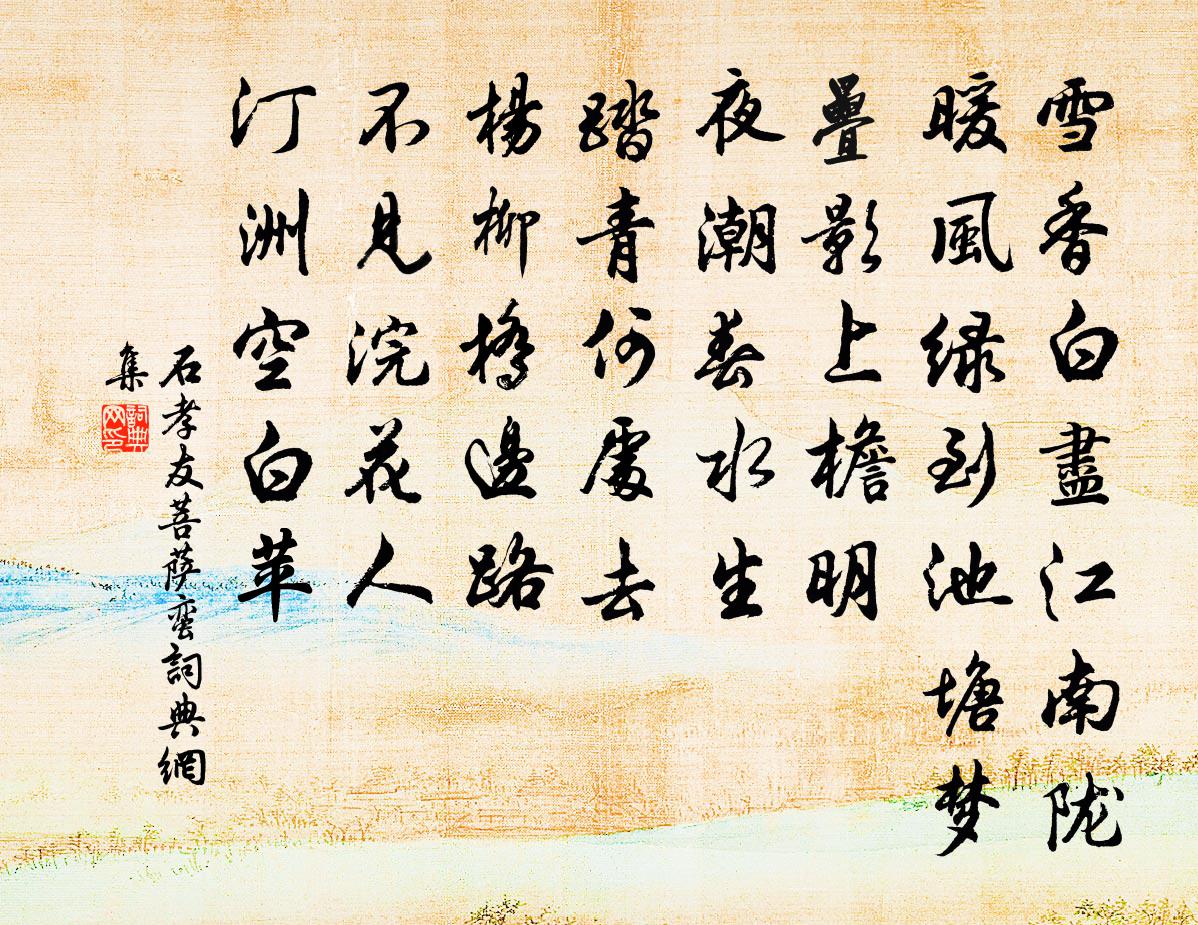 雪香白盡江南陇
暖風绿到池塘梦
疊影上檐明
夜潮春水生
踏青何處去
楊柳橋邊路
不見浣花人
汀洲空白苹
石孝友菩萨蛮詞典網
集
詞典网印